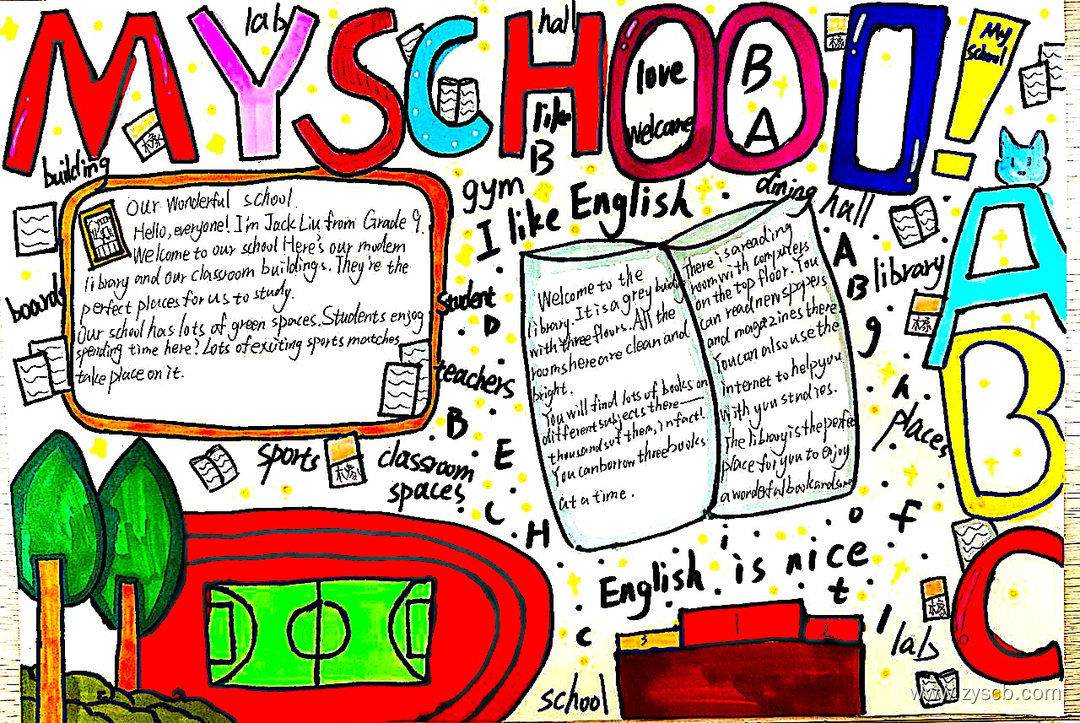 MY SCHOOL!
lab
hall
love
Welcome
B
A
like
B
My
school
building
Our Wonderful school.
Hello, everyone! I'm Jack Liu from Grade 9.
Welcome to our school Here's our modem
library and our classroom buildings. They're the
perfect pluces for us to study.
Our school has lots of green spaces. Students enjog
spending time here? Lots of exciting sports matches
take place on it.
gym
I like English
dining hall
board
Student
D
teachers
B
E
C
H
sports
classroom
spaces
橡
橡
橡
橡
Welcome to the
library. It is a grey
with three flours. All the
rooms here are clean and
bright.
You will find lots of books on
different subjects there—
thousands of them, in fact!
You can borrow three books
at a time.
There is a reading
room with computers
on the top floor. You
can read newspapers
and magazines there
You can also use the
internet to help you
with you studies.
The library is the perfect
place for you to enjoy
a wonderful book
A
B
library
g
h
places
o
f
i
t
l
English is nice
c
3
1
2
school
lab
A
B
C
www.zyscb.com